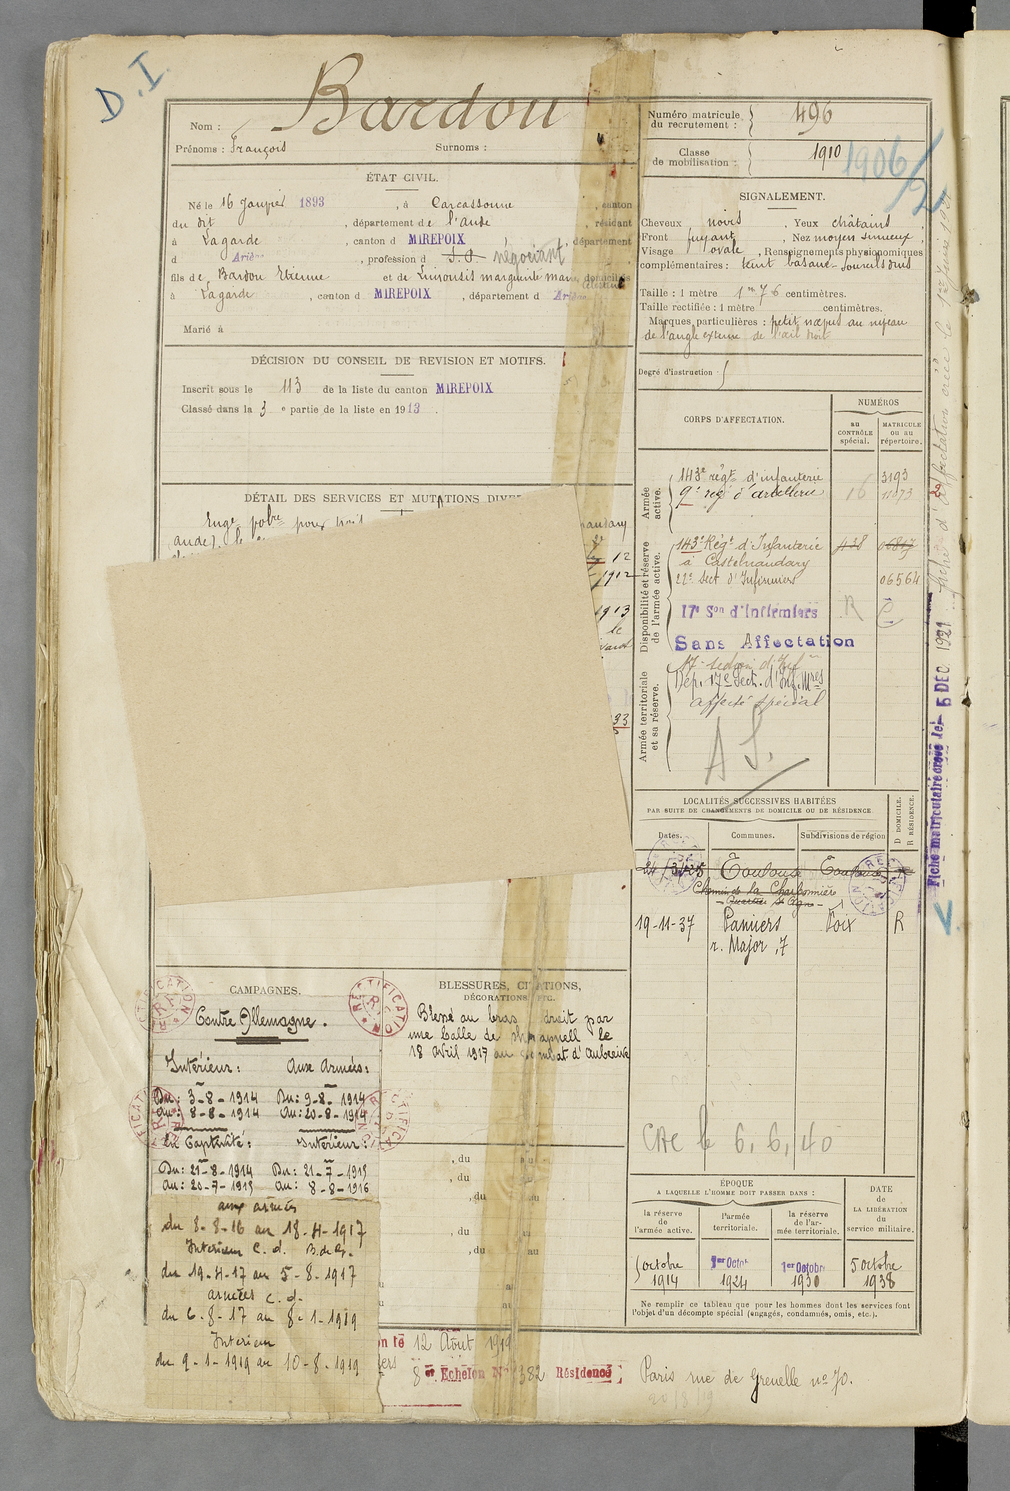 D.I.
Bardou
Nom :
Prénoms : François Surnoms :
ÉTAT CIVIL.
Né le 16 Janvier 1893, à Carcassonne, canton
du dit, département de l'aude, résidant
à Lagarde, canton d MIREPOIX, département
d Ariège, profession d S.O. négociant
fils de Bardou Etienne et de marguerite marie, domiciliés
à Lagarde, canton d MIREPOIX, département d Ariège
Marié à
DÉCISION DU CONSEIL DE REVISION ET MOTIFS.
Inscrit sous le 113 de la liste du canton MIREPOIX
Classé dans la 3e partie de la liste en 1913.
DÉTAIL DES SERVICES ET MUTATIONS
Enge volre pour huit
aude). le
12
1912
1913
le
33
CAMPAGNES.
Contre Allemagne.
Intérieur : Aux Armées :
Du : 3-8-1914 Du : 9-8-1914
Au : 8-8-1914 Au : 20-8-1914
En Captivité : Intérieur :
Du : 21-8-1914 Du : 21-7-1915
Au : 20-7-1915 Au : 8-8-1916
aux armées
du 8-8-16 au 18-4-1917
Interieur C. d. B. de G.
du 19-4-17 au 5-8-1917
armées c. d.
du 6-8-17 au 8-1-1919
Interieur
du 9-1-1919 au 10-8-1919
BLESSURES, CITATIONS,
DÉCORATIONS, ETC.
Blessé au bras droit par
une balle de shrapnell le
18 avril 1917 au combat d'Auberive
, du au
, du au
, du au
, du au
, du au
au
au
RECTIFICATION
12 Août 1919
8 er Echelon N° 382 Résidence
Numéro matricule du recrutement : 496
Classe de mobilisation : 1910
1906/2
SIGNALEMENT.
Cheveux noirs, Yeux châtains
Front fuyant, Nez moyen sinueux
Visage ovale, Renseignements physionomiques
complémentaires : teint basané - sourcils
Taille : 1 mètre 1m 76 centimètres.
Taille rectifiée : 1 mètre centimètres.
Marques particulières : petit nœvus au niveau
de l'angle externe de l'œil droit
Degré d'instruction :
CORPS D'AFFECTATION.
NUMÉROS
au CONTRÔLE spécial.
MATRICULE ou au répertoire.
Armée active.
143e régt d'infanterie 3193
9e reg d'artillerie 16
Disponibilité et réserve de l'armée active.
143e Régt d'Infanterie 438
à Castelnaudary
22e Sect d'Infirmiers 06564
17e Son d'Infirmiers R
Sans Affectation
Armée territoriale et sa réserve.
17e section d'Inf
Dép. 17e Sect. d'Inf. Mres
affecté spécial
A S.
LOCALITÉS SUCCESSIVES HABITÉES
PAR SUITE DE CHANGEMENTS DE DOMICILE OU DE RÉSIDENCE.
Dates. Communes. Subdivisions de région
D DOMICILE.
R RÉSIDENCE.
Toulouse Toulouse
Chemin de la Charbonnière
- Quartier St Agne -
19-11-37 Pamiers Foix R
r. Major, 7
CRC le 6, 6, 40
ÉPOQUE
A LAQUELLE L'HOMME DOIT PASSER DANS :
DATE de LA LIBÉRATION du service militaire.
la réserve de l'armée active.
l'armée territoriale.
la réserve de l'armée territoriale.
5 octobre 1914
1er Octobre 1924
1er Octobre 1930
5 octobre 1938
Ne remplir ce tableau que pour les hommes dont les services font
l'objet d'un décompte spécial (engagés, condamnés, omis, etc.).
Paris rue de Grenelle no 70.
Fiche matriculaire créée le : 5 DEC. 1921
fiche d'affectation créée le 1er